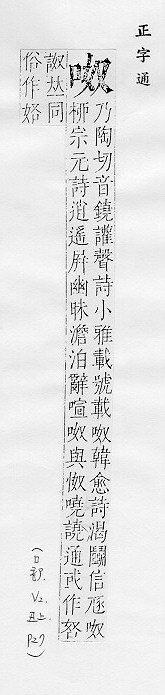 正字通
呶
乃陶切音鐃讙聲詩小雅載號載呶韓愈詩渴鬬信豗呶
柳宗元詩逍遙屛幽昧澹泊辭喧呶與怓嘵譊通或作
詉 同
俗作
(口部. V2. 丑上. P27)